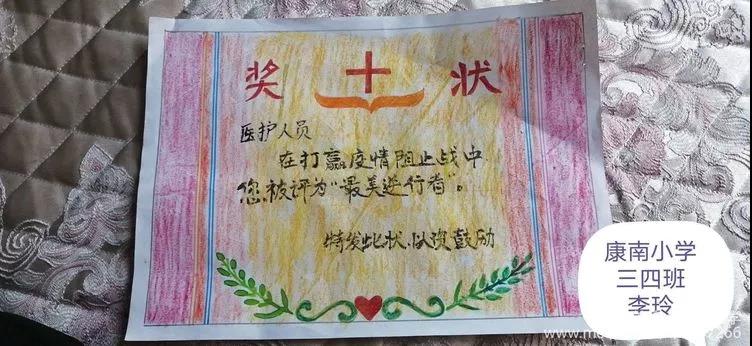 奖状
医护人员
在打赢疫情阻止战中
您被评为“最美逆行者”。
特发此状.以资鼓励
康南小学
三四班
李玲